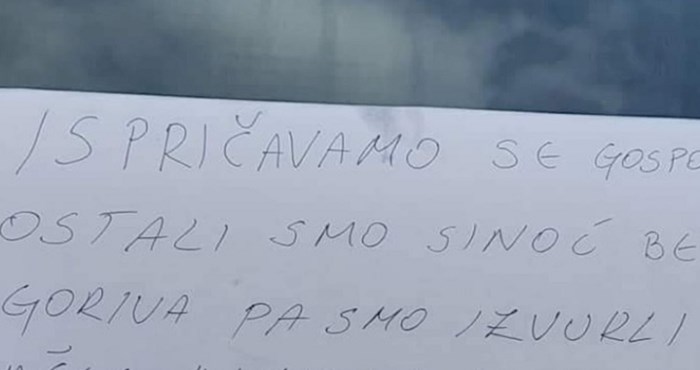 ISPRIČAVAMO SE GOSPO
OSTALI SMO SINOĆ BE
GORIVA PA SMO IZVURLI